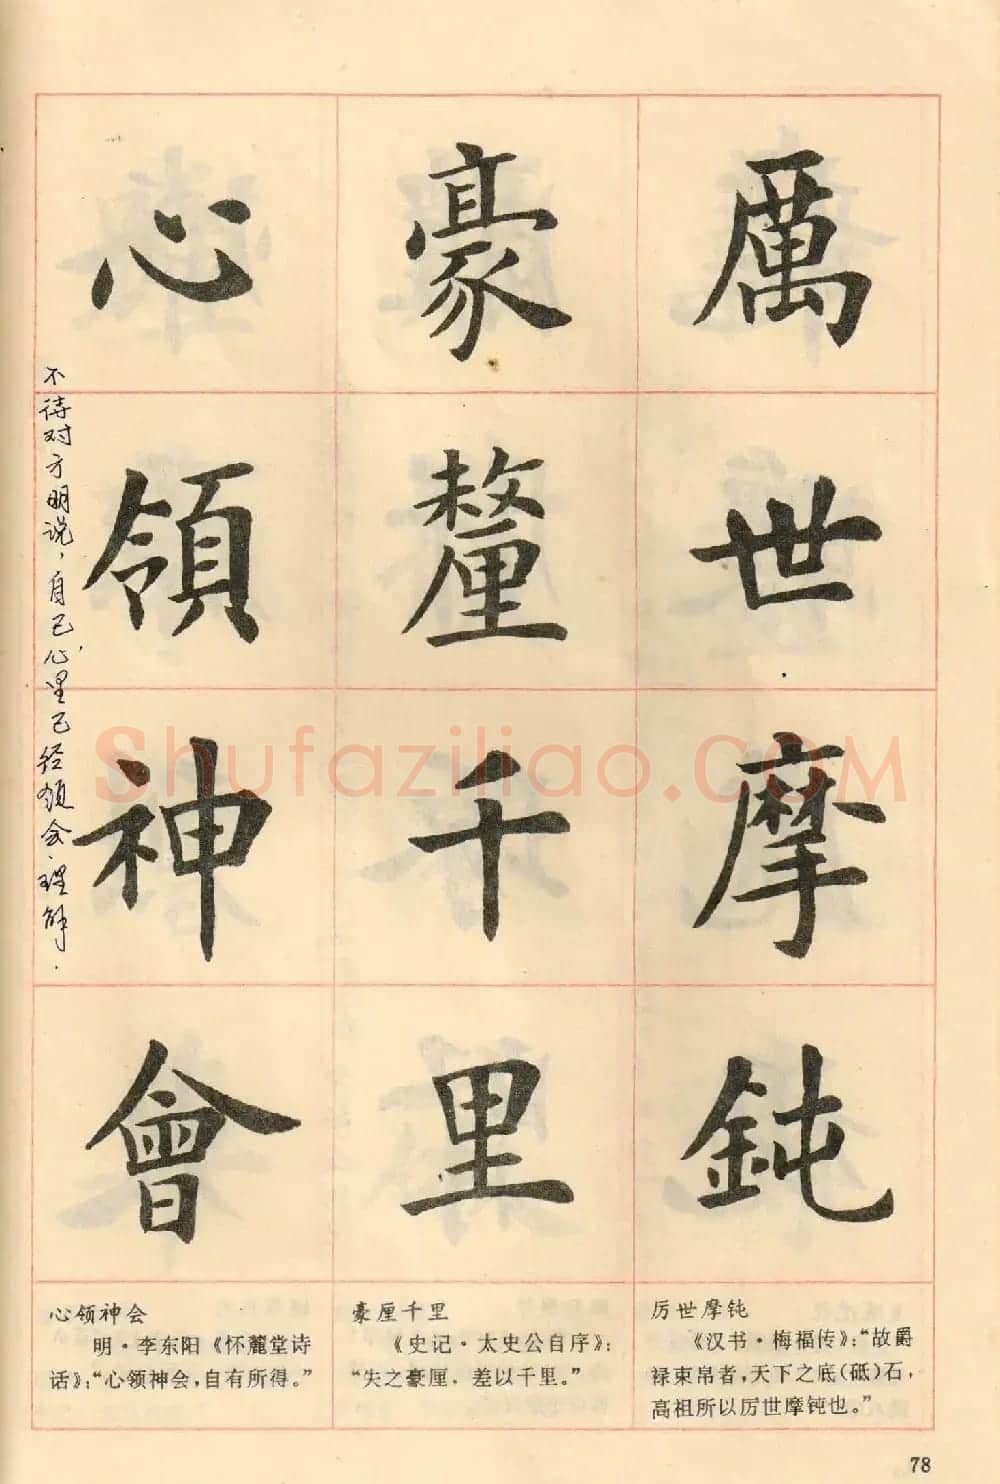 厲世摩鈍
豪釐千里
心領神會
不待对方明说，自己心里已经领会理解.
Shufaziliao.COM
厉世摩钝
《汉书·梅福传》：“故爵
禄束帛者，天下之底(砥)石，
高祖所以厉世摩钝也。”
豪厘千里
《史记·太史公自序》：
“失之豪厘，差以千里。”
心领神会
明·李东阳《怀麓堂诗
话》：“心领神会，自有所得。”
78